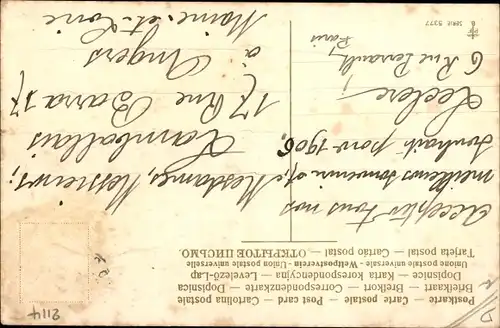 Postkarte — Carte postale — Post card — Cartolina postale
Brevkaart — Brefkort — Correspondenzkarte — Dopisnica
Dopisnice — Karta korespondencyjna — Levelező-Lap
Union postale universelle - Weltpostverein - Union postale universelle
Tarjeta postal — Cartão postal — ОТКРЫТОЕ ПИСЬМО.
Accepter tous nos
meilleurs souvenirs et
souhait pour 1906,
Leclere,
6 Rue Perrault,
Paris
Mesdames, Messieurs,
Lamballais
17 Rue Barra 17
à Angers
Maine-et-Loire
Serie 5377
2114